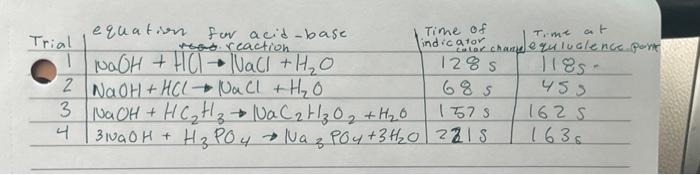 equation for acid-base reaction
Time of indicator color change
Time at equivalence point
Trial
1 NaOH + HCl → NaCl + H₂O 128 s 118s
2 NaOH + HCl → NaCl + H₂O 68 s 45s
3 NaOH + HC₂H₃ → NaC₂H₃O₂ + H₂O 157s 162 s
4 3NaOH + H₃PO₄ → Na₃PO₄ + 3H₂O 221s 163s